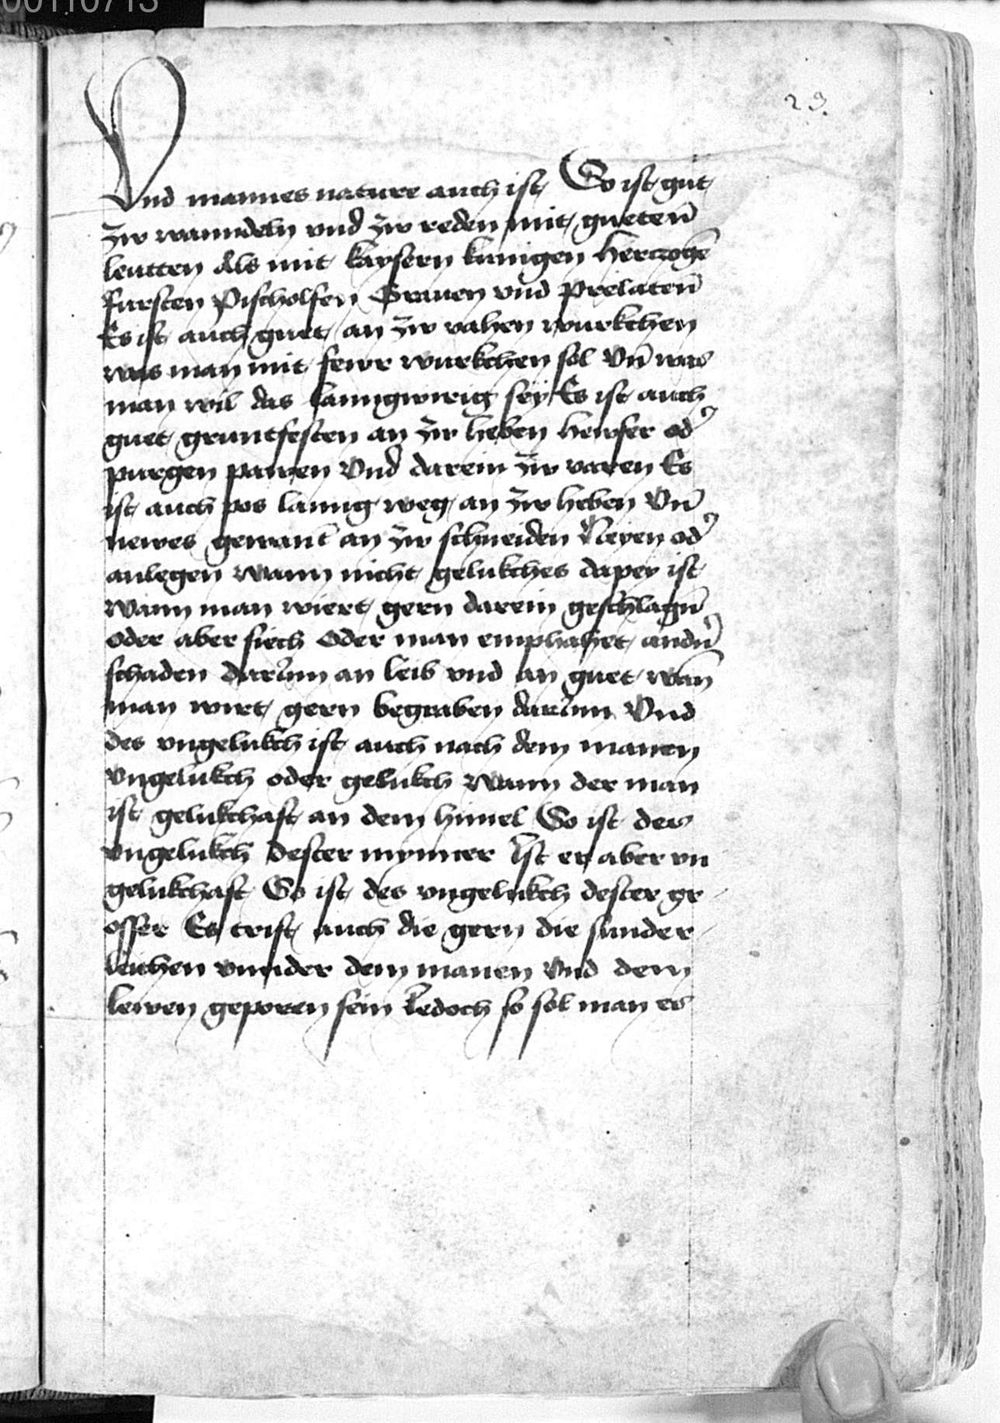 00110713
23.
Vnd mannes nature auch ist So ist gut
zw wanndeln vnd zw reden mit gueten̄
leutten Als mit kaysern kunigen Herczogē
Fursten Pischolfen Grauen vnd Prelaten̄
Es ist auch guet an zw vahen wurkchen
was man mit fewr wurkchen sol Vn̄ was
man wil das lanngwirig sey Es ist auch
guet gruntfesten an zw heben Hewser od̓
purgen pawen Vnd darein zw varen Es
ist auch pos lanng weg an zw heben Vn̄
newes gewant an zw schneiden od̓
anlegen Wann nicht gelukches dapey ist
Wann man wiert gern darein geschlagn̄
oder aber siech Oder man emphahet andn̓
schaden darum an leib vnd an guet wan̄
man wirt gern begraben darinn Vnd
des vngelukch ist auch nach dem manen
vngelukch oder gelukch Wann der man
ist gelukchaft an dem himel So ist des
vngelukch dester mynner Ist er aber vn
gelukchaft So ist des vngelukch dester gr
osser Es trift auch die gern die sunder
leichen vnnder dem manen Vnd dem
lewen geporen sein Iedoch so sol man es